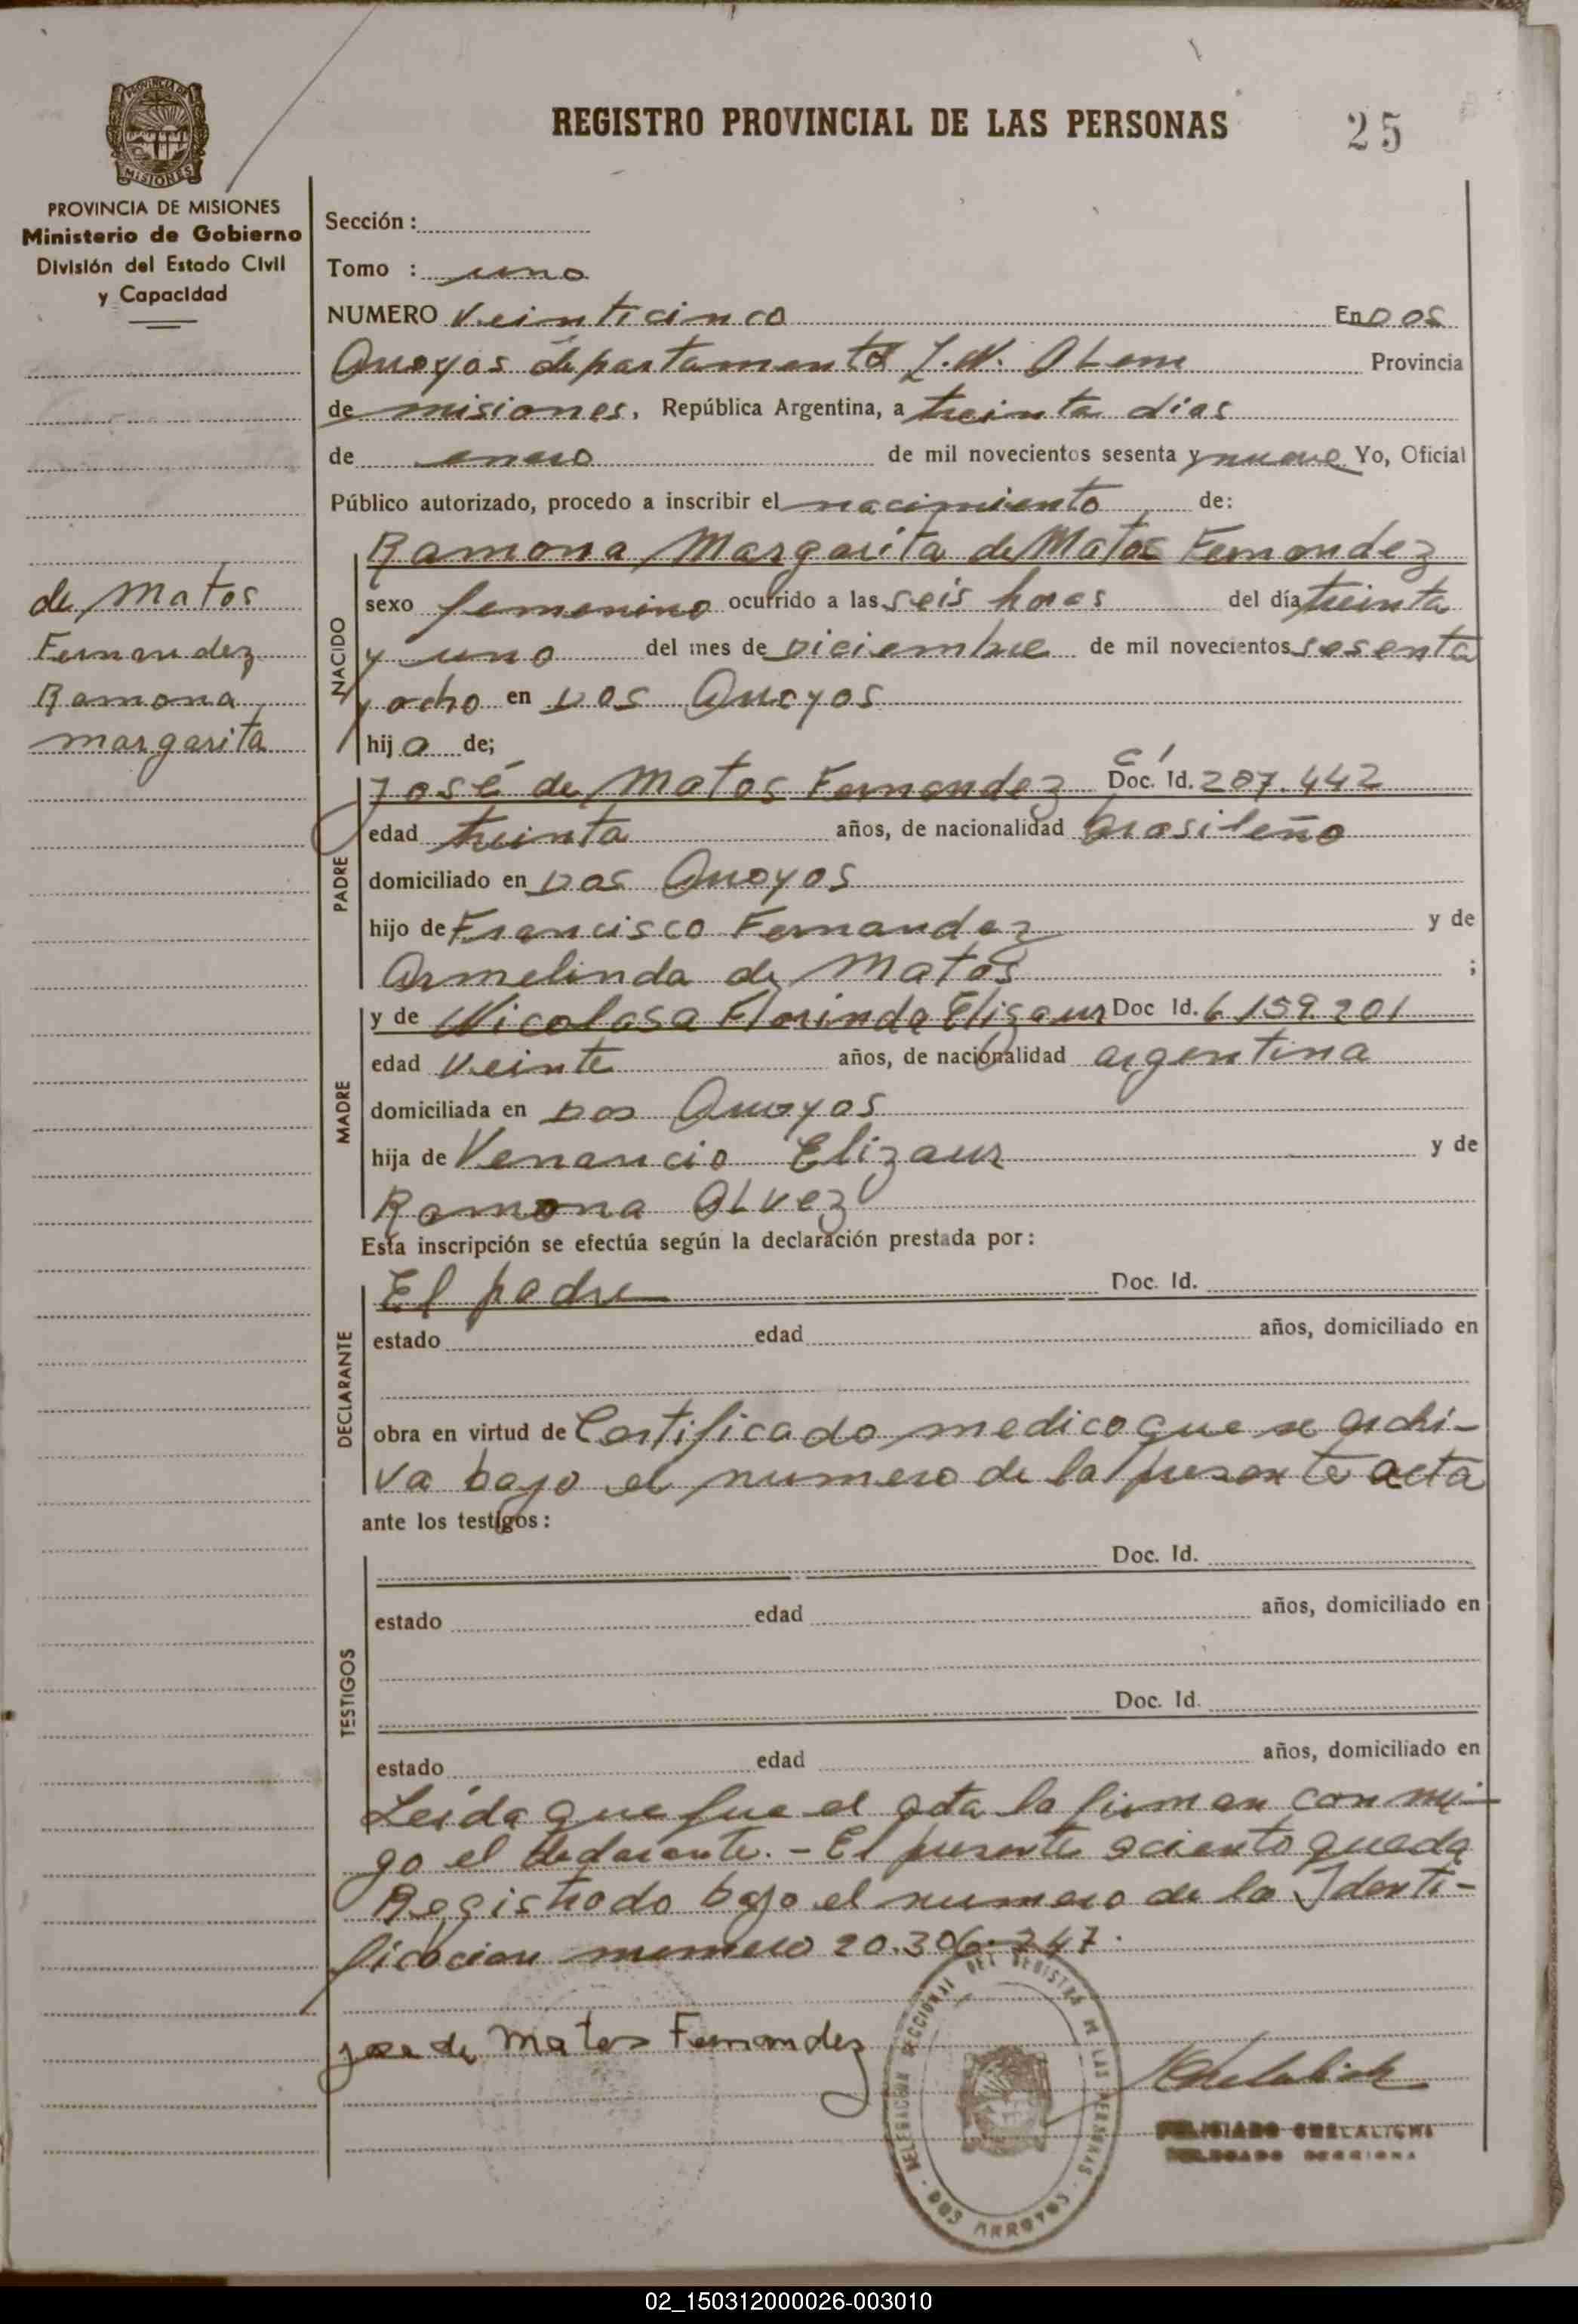 REGISTRO PROVINCIAL DE LAS PERSONAS
25
PROVINCIA DE MISIONES
PROVINCIA DE MISIONES
Ministerio de Gobierno
División del Estado Civil
y Capacidad
Sección :
Tomo : uno
NUMERO Veinticinco En Dos
Arroyos departamento L.N. Alem Provincia
de misiones, República Argentina, a treinta dias
de enero de mil novecientos sesenta y nueve Yo, Oficial
Público autorizado, procedo a inscribir el nacimiento de:
Ramona Margarita de Matos Fernandez
de Matos
Fernandez
Ramona
margarita
NACIDO
sexo femenino ocurrido a las seis horas del día treinta
y uno del mes de Diciembre de mil novecientos sesenta
y ocho en Dos Arroyos
hija de;
PADRE
C I
José de Matos Fernandez Doc. Id. 287.442
edad treinta años, de nacionalidad brasileño
domiciliado en Dos Arroyos
hijo de Francisco Fernandez y de
Armelinda de Matos ;
MADRE
y de Nicolasa Florinda Elizaur Doc Id. 6.159.201
edad Veinte años, de nacionalidad argentina
domiciliada en Dos Arroyos
hija de Venancio Elizaur y de
Ramona Alvez
Esta inscripción se efectúa según la declaración prestada por:
DECLARANTE
El padre Doc. Id.
estado edad años, domiciliado en
obra en virtud de Certificado medico que se archi-
va bajo el numero de la presente acta
ante los testigos:
TESTIGOS
Doc. Id.
estado edad años, domiciliado en
Doc. Id.
estado edad años, domiciliado en
Leida que fue el acta la firman conmi-
go el declarante. - El presente aciento queda
Registrado bajo el numero de la Identi-
ficacion numero 20.306.247.
Jose de Matos Fernandez
DELEGACION SECCIONAL DEL REGISTRO DE LAS PERSONAS
DOS ARROYOS
CHELALICHE
DELEGADO SECCIONA
02_150312000026-003010